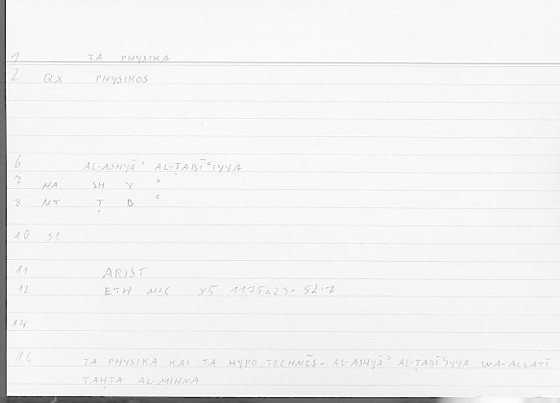 1 TA PHYSIKA
2 QX PHYSIKOS
6 AL-ASHYĀʾ AL-ṬABĪʿIYYA
7 NA SH Y ʾ
8 NT Ṭ B ʿ
10 SC
11 ARIST
12 ETH NIC 1175A23- 52.7
14
16 TA PHYSIKA KAI TA HYPO TECHNĒS - AL-ASHYĀʾ AL-ṬABĪʿIYYA WA-ALLATĪ
TAḤTA AL-MIHNA